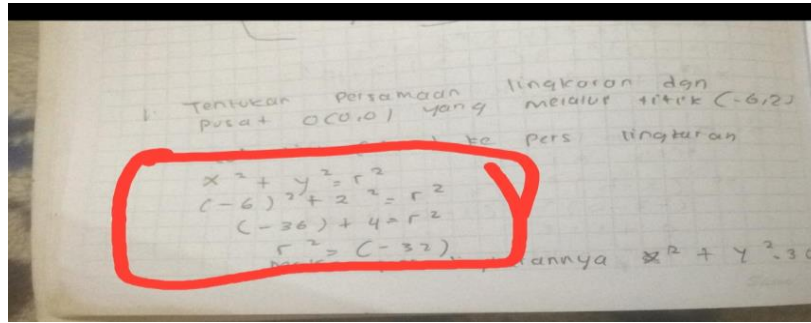 1. Tentukan Persamaan lingkaran dgn
pusat O(0,0) yang melalui titik (-6,2)
ke pers lingkaran
x² + y² = r²
(-6)² + 2² = r²
(-36) + 4 = r²
r² = (-32)
annya x² + y² = 3